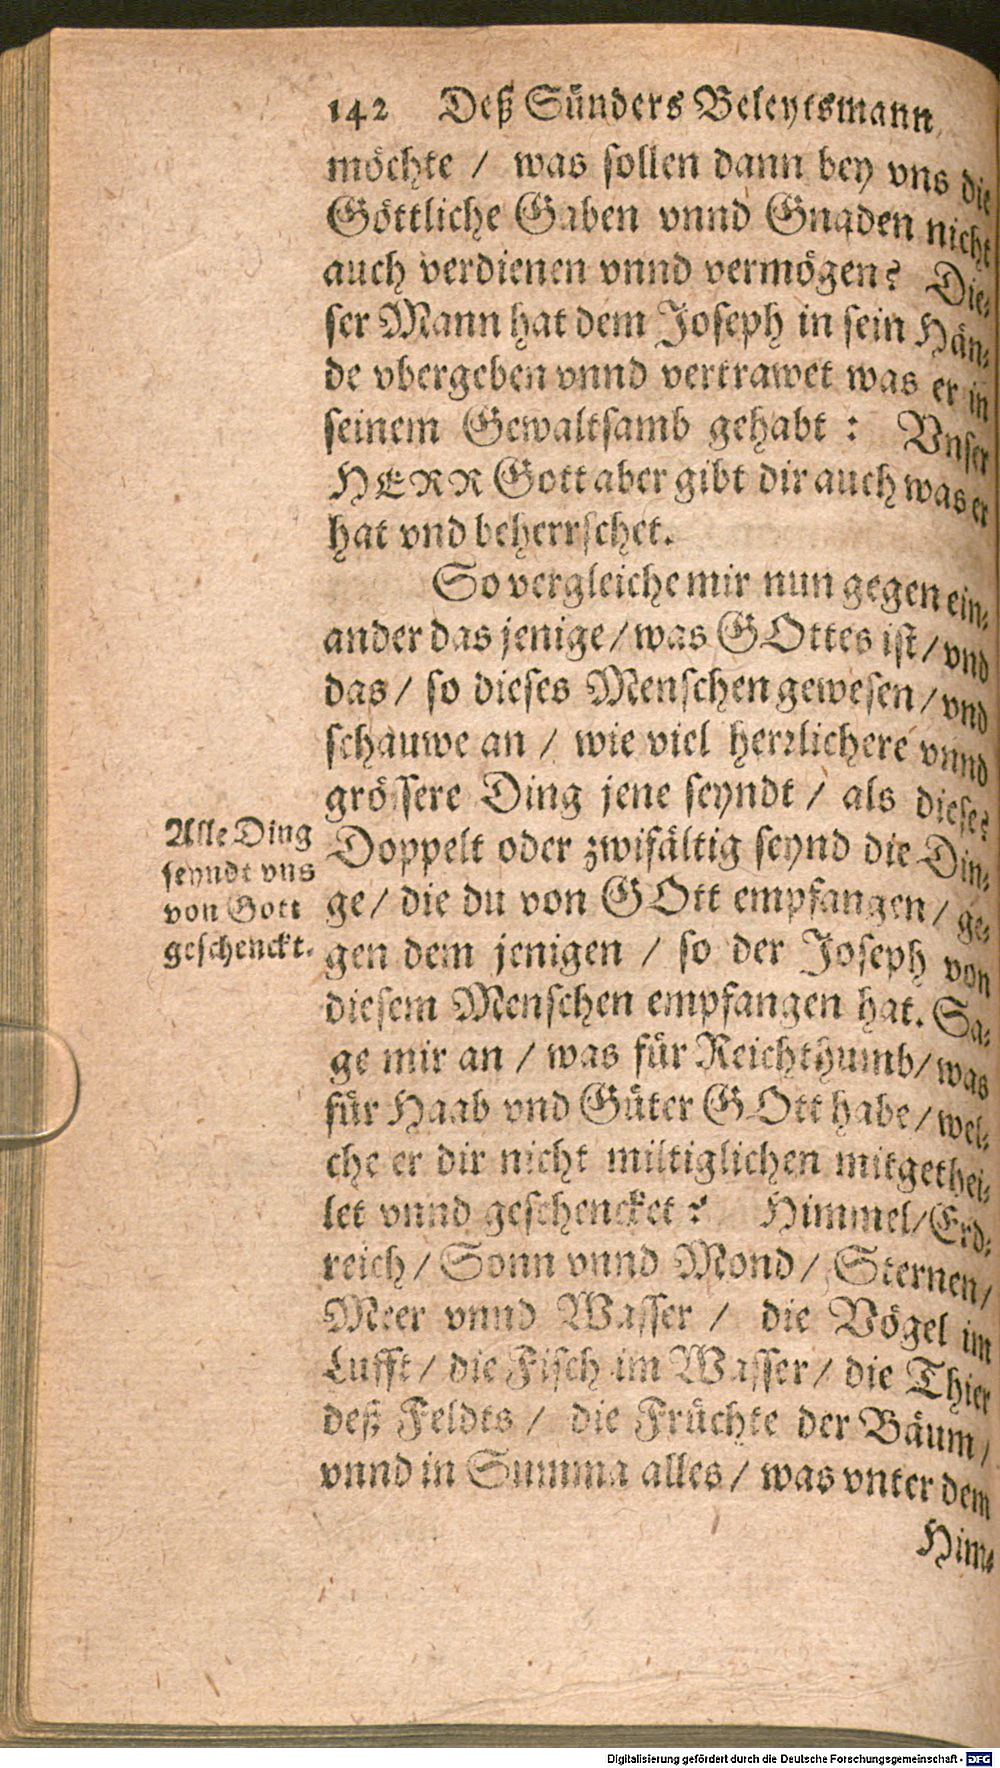 142 Deß Sünders Beleytsmann
möchte / was sollen dann bey vns die
Göttliche Gaben vnnd Gnaden nicht
auch verdienen vnnd vermögen? Die-
ser Mann hat dem Joseph in sein Hän-
de vbergeben vnnd vertrawet was er in
seinem Gewaltsamb gehabt : Vnser
HERR Gott aber gibt dir auch was er
hat vnd beherrschet.
So vergleiche mir nun gegen ein-
ander das jenige / was GOttes ist / vnd
das / so dieses Menschen gewesen / vnd
schauwe an / wie viel herrlichere vnnd
grössere Ding jene seyndt / als diese?
Doppelt oder zwifältig seynd die Din-
ge / die du von GOtt empfangen / ge-
gen dem jenigen / so der Joseph von
diesem Menschen empfangen hat. Sa-
ge mir an / was für Reichthumb / was
für Haab vnd Güter GOtt habe / wel-
che er dir nicht miltiglichen mitgethei-
let vnnd geschencket? Himmel / Erd-
reich / Sonn vnnd Mond / Sternen /
Meer vnnd Wasser / die Vögel im
Lufft / die Fisch im Wasser / die Thier
deß Feldts / die Früchte der Bäum /
vnnd in Summa alles / was vnter dem
Him-
Alle Ding
seyndt vns
von Gott
geschenckt.
Digitalisierung gefördert durch die Deutsche Forschungsgemeinschaft - DFG